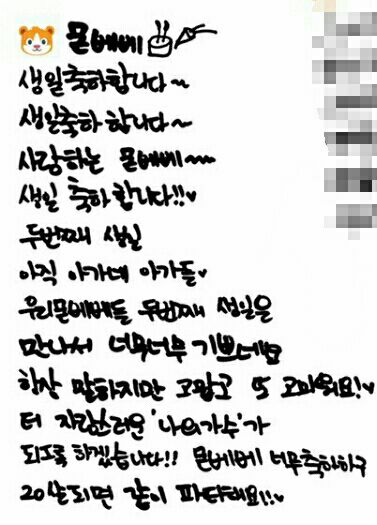 몬베베
생일축하합니다~
생일축하 합니다~
사랑하는 몬베베~
생일 축하합니다!!♥
두번째 생일
아직 아가네 아가들♥
우리몬베베들 두번째 생일은
만나서 너무너무 기쁘네요
항상 말하지만 고맙고 또 고마워요!♥
더 자랑스러운 '나의가수'가
되도록 하겠습니다!! 몬베베 너무축하하구
20살되면 같이 파티해요!!♥